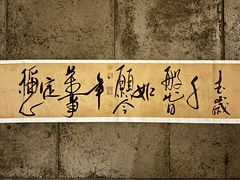 去歲千般皆如願今年萬事定稱心